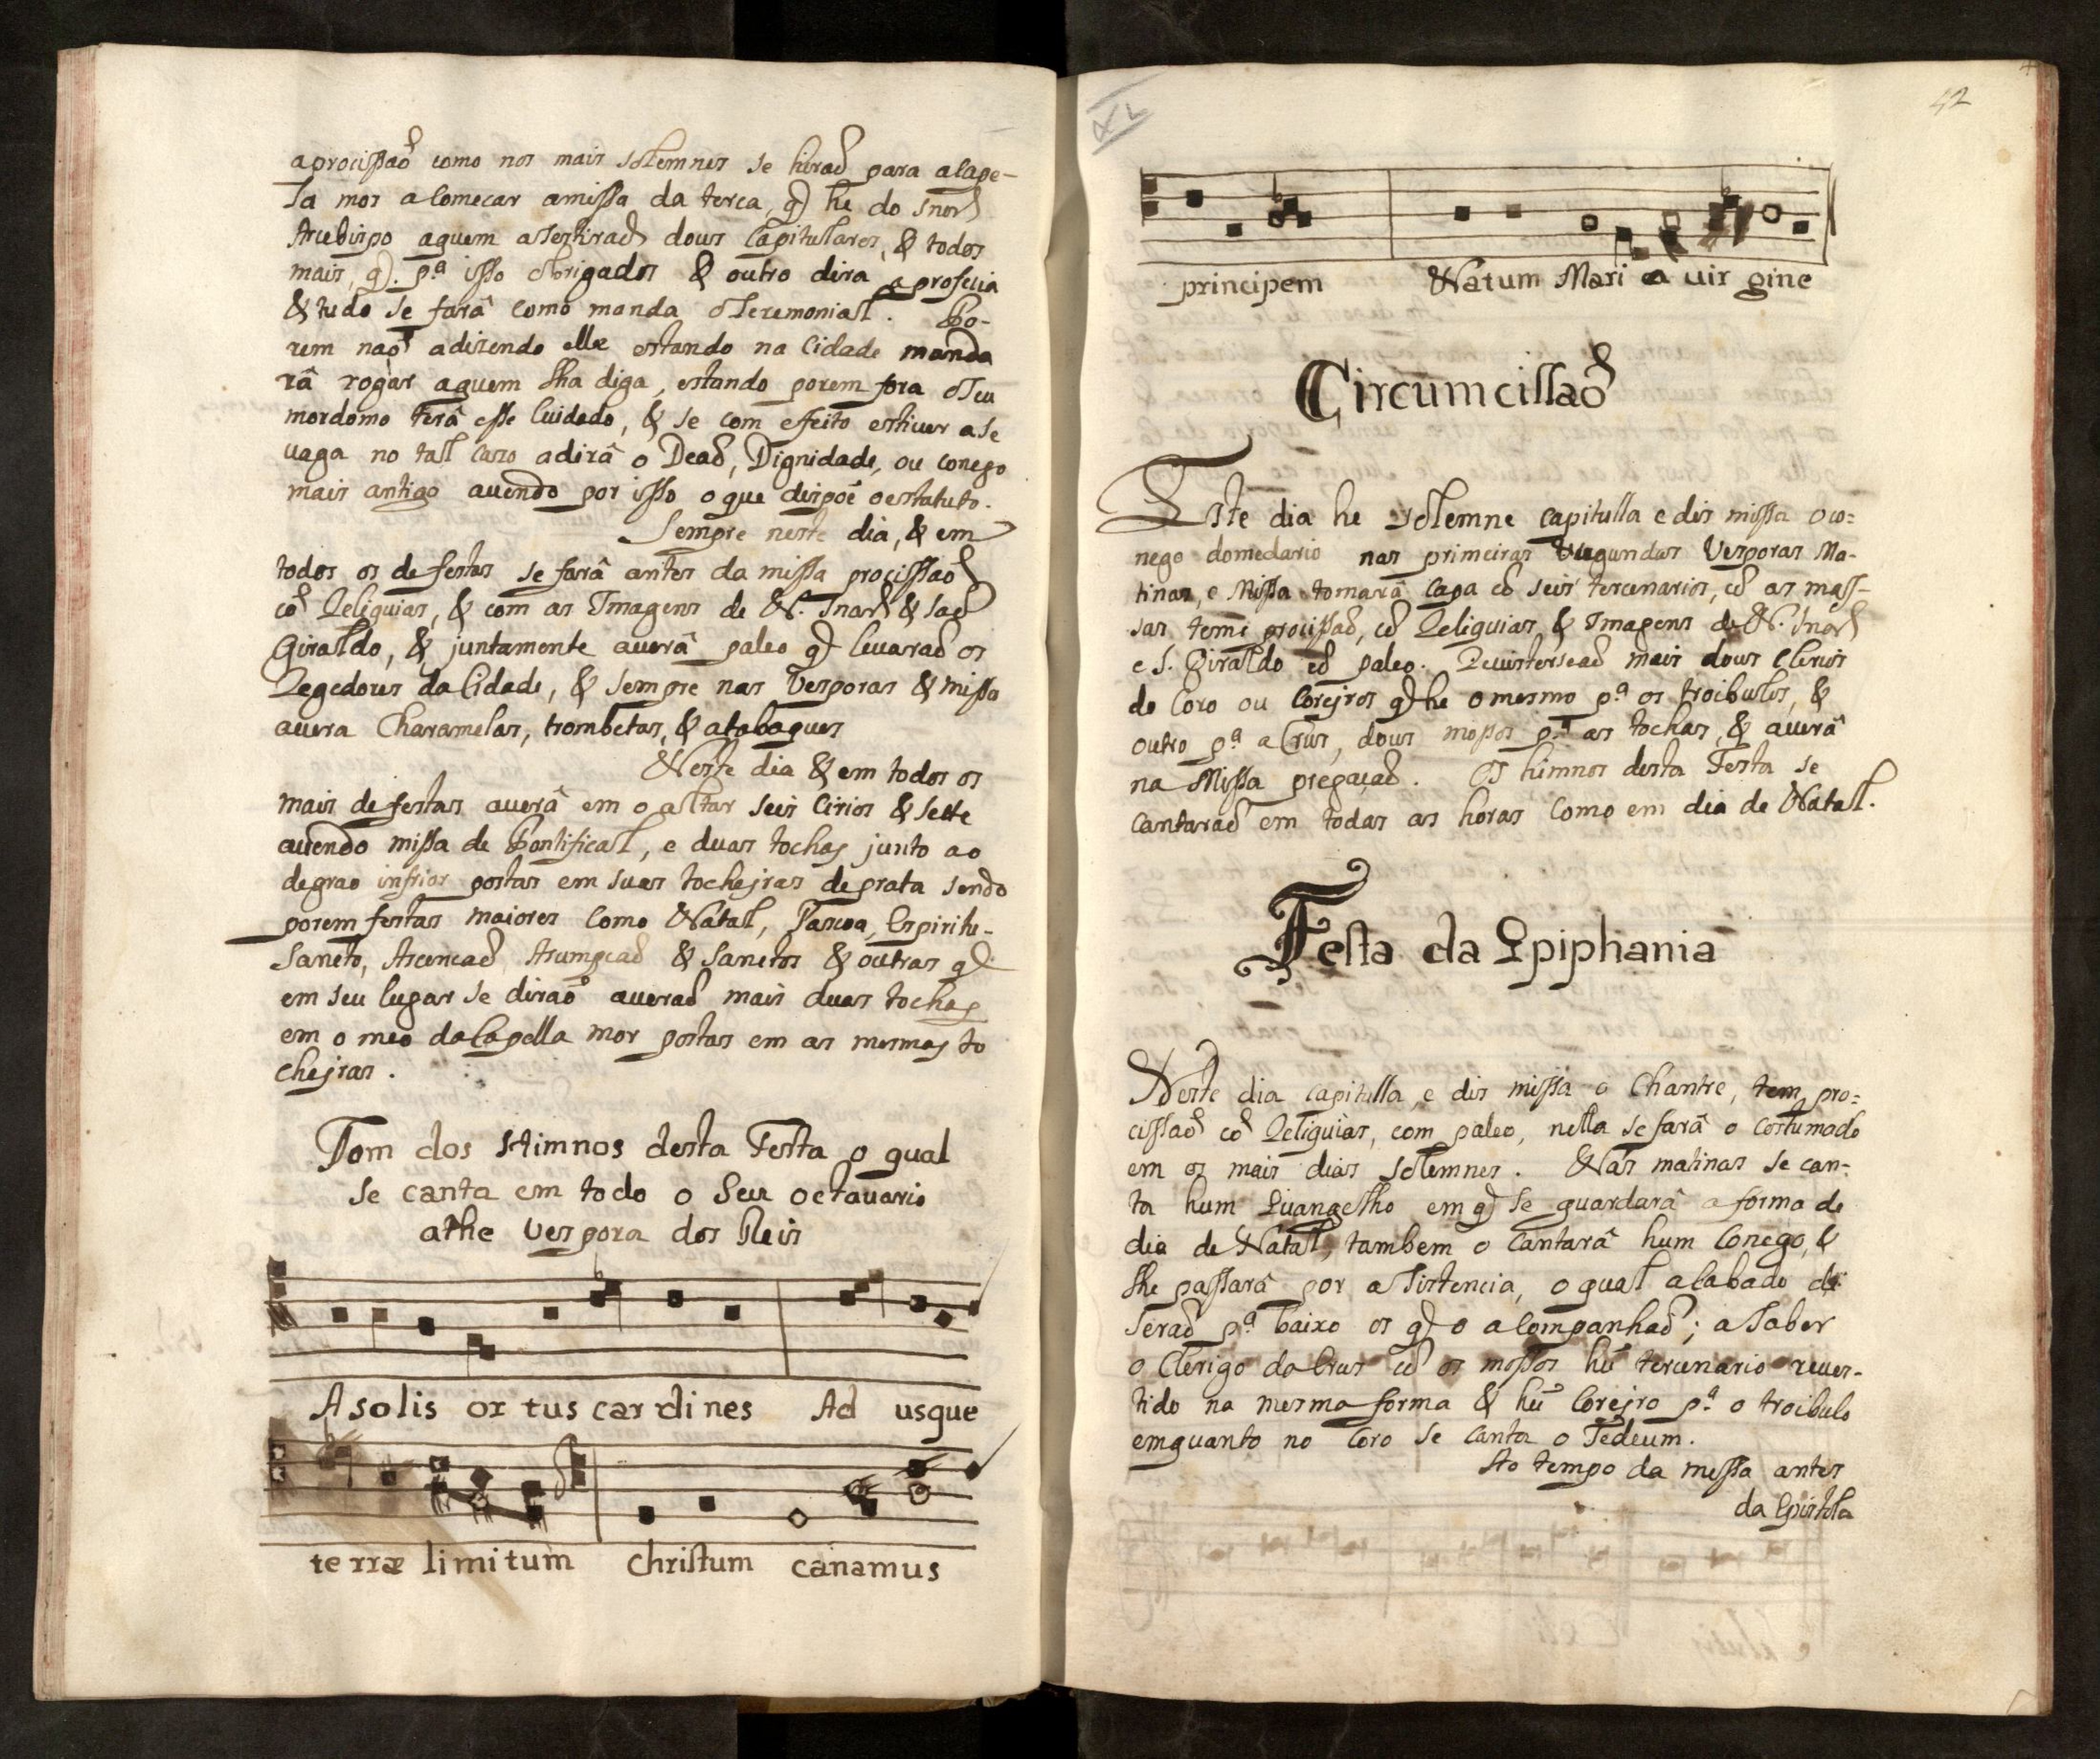 aprocissaõ como nos mais solemnes se hiraõ para acape-
la mor acomecar amissa da terca, q̃ he do snor
Arcebispo aquem asestiraõ dous capitulares, & todos
mais, q̃. p.ª isso obrigados & outro dira a profecia
& tudo se farâ como manda oseremonial. Po-
rem naõ adizendo elle estando na Cidade manda
râ rogar aquem lha diga, estando porem fora oseu
mordomo terâ esse cuidado, & se com effeito estiuer a se
uaga no tal cazo adirâ o Deaõ, Dignidade, ou conego
mais antigo auendo por isso oque dispoê oestatuto.
Sempre neste dia, & em
todos os de festas se farâ antes da missa procissaõ
cõ Reliquias, & com as Imagens de N. Snarã & saõ
Giraldo, & juntamente auerâ paleo q̃ leuaraõ os
Regedores da Cidade, & sempre nas Vesporas & missa
auera Charamelas, trombetas, & atabaques
Neste dia & em todos os
mais de festas auerâ em o altar seis Cirios & sette
auendo missa de Pontifical, e duas tochas junto ao
degrao infrior postas em suas tochejras de prata sendo
porem festas maiores como Natal, Pascoa, Espiritu-
Sancto, Ascencaõ Asumpcaõ & Sanctos & outras q̃
em seu lugar se diraõ aueraõ mais duas tochas
em o meo da Capella mor postas em as mesmas to
chejras.
Tom dos Himnos desta Festa o qual
se canta em todo o seu octauario
athe Vespora dos Reis
A solis or tus car di nes Ad usque
te rræ li mi tum christum canamus
42
principem Natum Mari a uir gine
Circumcissaõ
Este dia he solemne capitulla e dis missa o co=
nego domedario nas primeiras & segundas Vesporas Ma-
tinas, e Missa tomarâ capa cõ seis tercenarios, cõ as mass-
sas temê procissaõ, cõ Reliquias & Imagens de N. Snarã
e S. Giraldo cõ paleo. Reuisterseaõ mais dous Clerios
do Coro ou Corejros q̃ he o mesmo p.ª os troibulos, &
outro p.ª a Crus, dous mossos p.ª as tochas, & auerâ
na Missa pregaçaõ. Os himnos desta Festa se
cantaraõ em todas as horas como em dia de Natal.
Festa da Epiphania
Neste dia capitulla, e dis missa o Chantre, tem pro=
cissaõ cõ Reliquias, com paleo, nella se farâ o costumado
em os mais dias solemnes. Nas matinas se can-
ta hum Euangelho em q̃ se guardarâ a forma de
dia de Natal, tambem o cantarâ hum Conego, &
lhe passarâ por asistencia, o qual acabado de
seraõ p.ª baixo os q̃ o acompanhaõ; a saber
o Clerigo da Crus cõ os mossos hũ tercenario reues-
tido na mesma forma & hũ Corejro p.ª o troibulo
emquanto no Coro se canta o Tedeum.
Ao tempo da missa antes
da Epistola